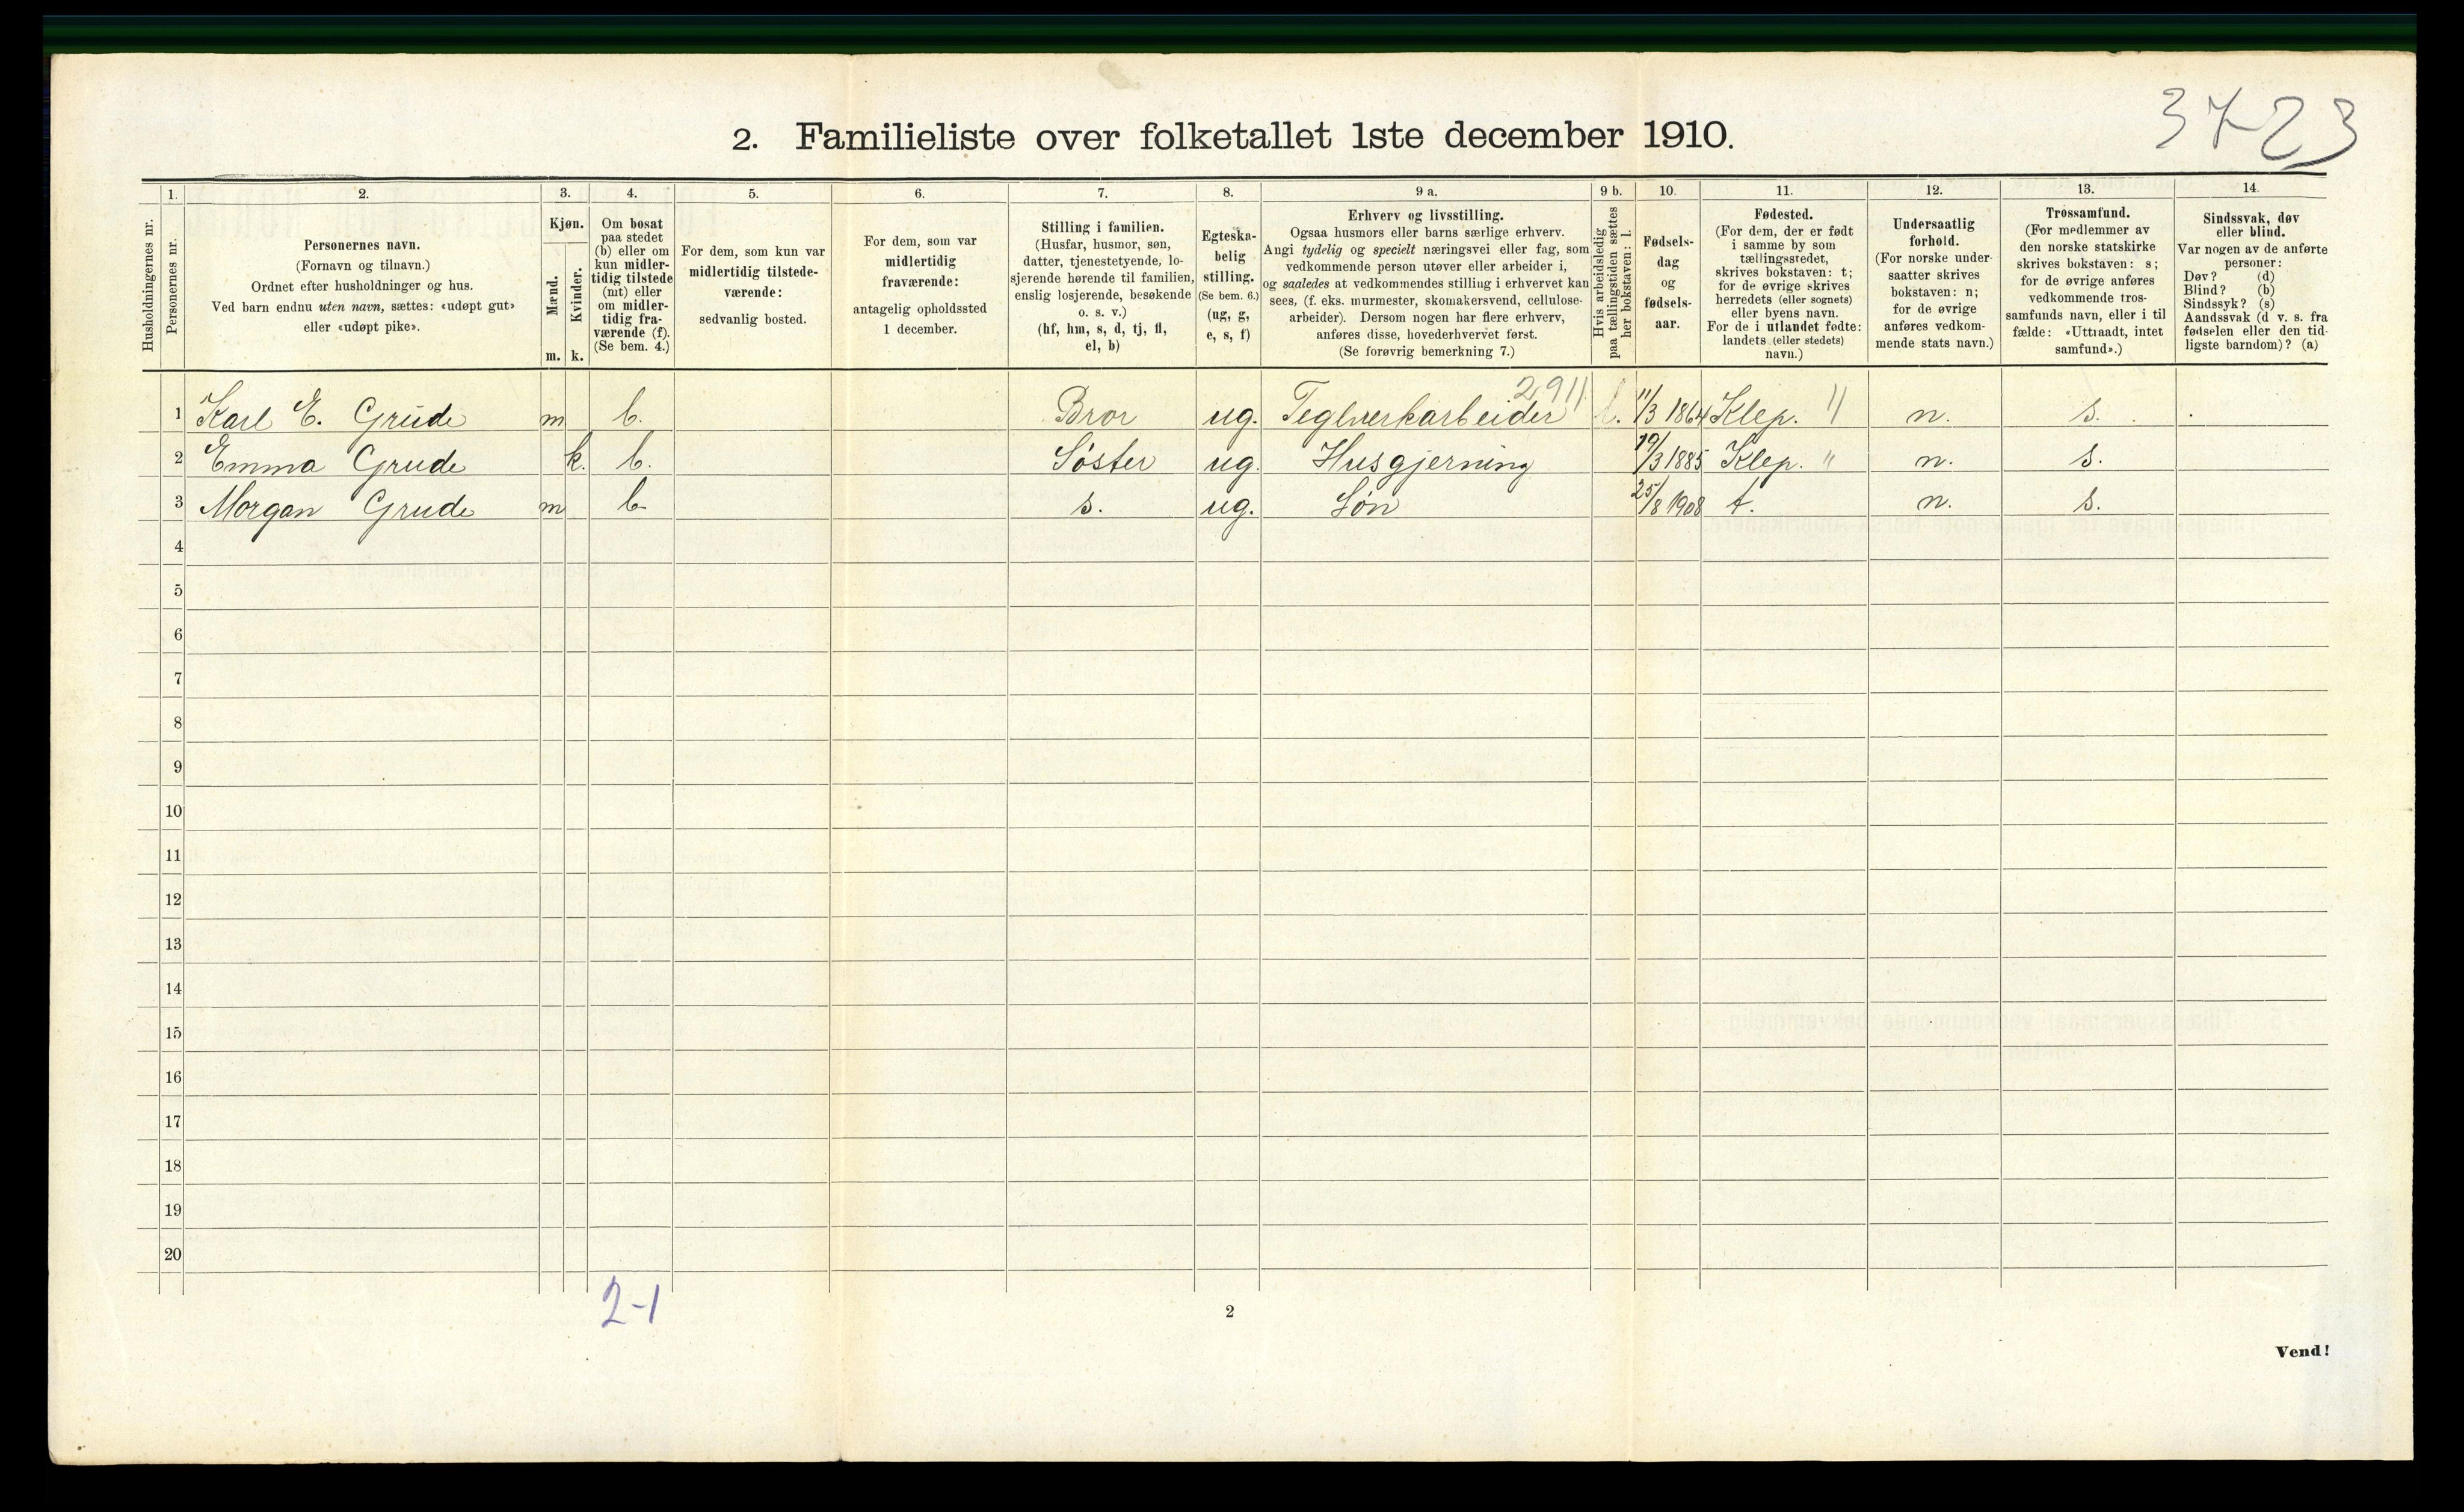 3723
2. Familieliste over folketallet 1ste december 1910.
Husholdningernes nr.
1.
Personernes nr.
2.
Personernes navn.
(Fornavn og tilnavn.)
Ordnet efter husholdninger og hus.
Ved barn endnu uten navn, sættes: «udøpt gut»
eller «udøpt pike».
3.
Kjøn.
Mænd.
m.
Kvinder.
k.
4.
Om bosat
paa stedet
(b) eller om
kun midler-
tidig tilstede
(mt) eller
om midler-
tidig fra-
værende (f).
(Se bem. 4.)
5.
For dem, som kun var
midlertidig tilstede-
værende:
sedvanlig bosted.
6.
For dem, som var
midlertidig
fraværende:
antagelig opholdssted
1 december.
7.
Stilling i familien.
(Husfar, husmor, søn,
datter, tjenestetyende, lo-
sjerende hørende til familien,
enslig losjerende, besøkende
o. s. v.)
(hf, hm, s, d, tj, fl,
el, b)
8.
Egteska-
belig
stilling.
(Se bem. 6.)
(ug, g,
e, s, f)
9 a.
Erhverv og livsstilling.
Ogsaa husmors eller barns særlige erhverv.
Angi tydelig og specielt næringsvei eller fag, som
vedkommende person utøver eller arbeider i,
og saaledes at vedkommendes stilling i erhvervet kan
sees, (f. eks. murmester, skomakersvend, cellulose-
arbeider). Dersom nogen har flere erhverv,
anføres disse, hovederhvervet først.
(Se forøvrig bemerkning 7.)
9 b.
Hvis arbeidsledig
paa tællingstiden sættes
her bokstaven: l.
10.
Fødsels-
dag
og
fødsels-
aar.
11.
Fødested.
(For dem, der er født
i samme by som
tællingsstedet,
skrives bokstaven: t;
for de øvrige skrives
herredets (eller sognets)
eller byens navn.
For de i utlandet fødte:
landets (eller stedets)
navn.)
12.
Undersaatlig
forhold.
(For norske under-
saatter skrives
bokstaven: n;
for de øvrige
anføres vedkom-
mende stats navn.)
13.
Trossamfund.
(For medlemmer av
den norske statskirke
skrives bokstaven: s;
for de øvrige anføres
vedkommende tros-
samfunds navn, eller i til
fælde: «Uttraadt, intet
samfund».)
14.
Sindssvak, døv
eller blind.
Var nogen av de anførte
personer:
Døv? (d)
Blind? (b)
Sindssyk? (s)
Aandssvak (d v. s. fra
fødselen eller den tid-
ligste barndom)? (a)
2911
1 Karl E. Grude m b. Bror ug. Teglverkarbeider l. 11/3 1864 Klep. " n. s.
2 Emma Grude k. b. Søster ug. Husgjerning 19/3 1885 Klep. " n. s.
3 Morgan Grude m b s. ug. Søn 25/8 1908 t. n. s.
4
5
6
7
8
9
10
11
12
13
14
15
16
17
18
19
20
2-1
2
Vend!